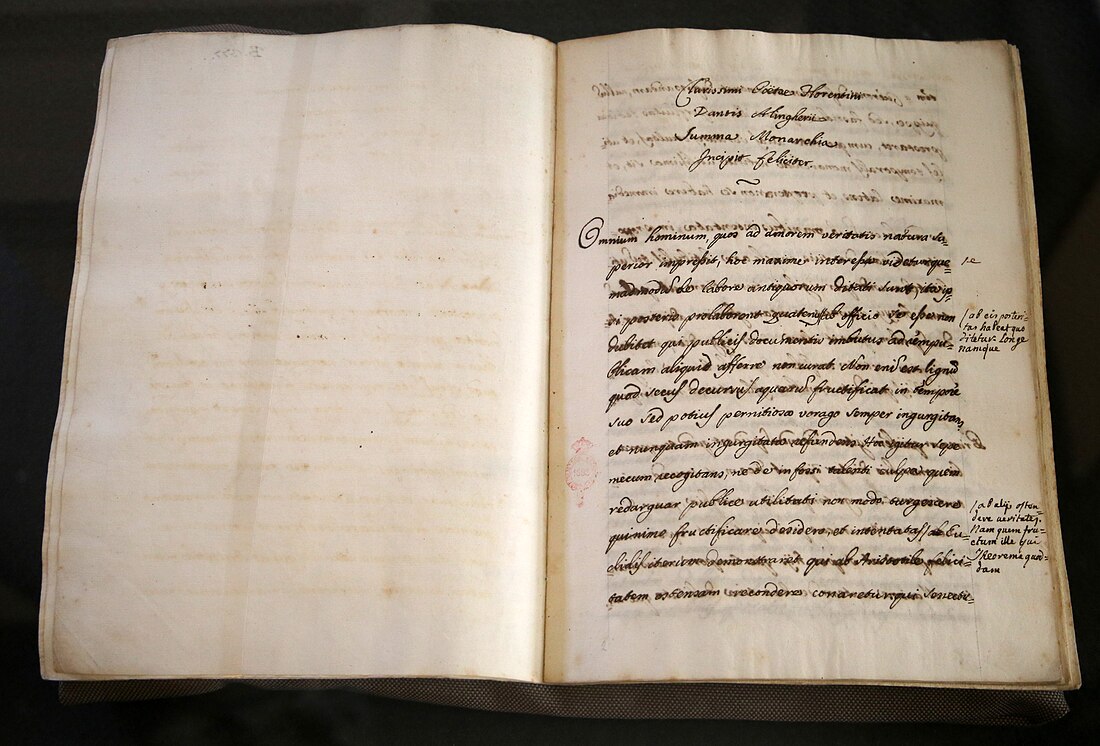 Clarissimi Poëtae Florentini
Dantis Alingherii
Summa Monarchia
Incipit feliciter
Omnium hominum, quos ad amorem veritatis natura su=
perior impressit, hoc maxime interesse videtur, que=
madmodũ de labore antiquorum ditati sunt, ita ip=
si posteris prolaborent quatenus ab officio se esse non
dubitet qui publicis documentis imbutus ad rempu=
blicam aliquid afferre non curat. Non enĩ est lignũ
quod secus decursus aquarũ fructificat in tempore
suo sed potius pernitiosa vorago semper ingurgitans
et nunquam ingurgitata refundens. Hoc igitur sepe
mecum recogitans, ne de infossi talenti culpa quem
redarguar publice utilitati non modo turgescere
quinimo fructificare desidero, et intentatas ab Eu=
clidis iterion demonstraret qui ab Aristotile felici=
tatem ostensam recondere conaretur qui senectu=
i.e
ab eis posteri=
tas habeat quo
ditetur. Longe
namque
ab alijs osten=
dere veritates.
Nam quem fru=
ctum ille qui
Theorema quod=
dam